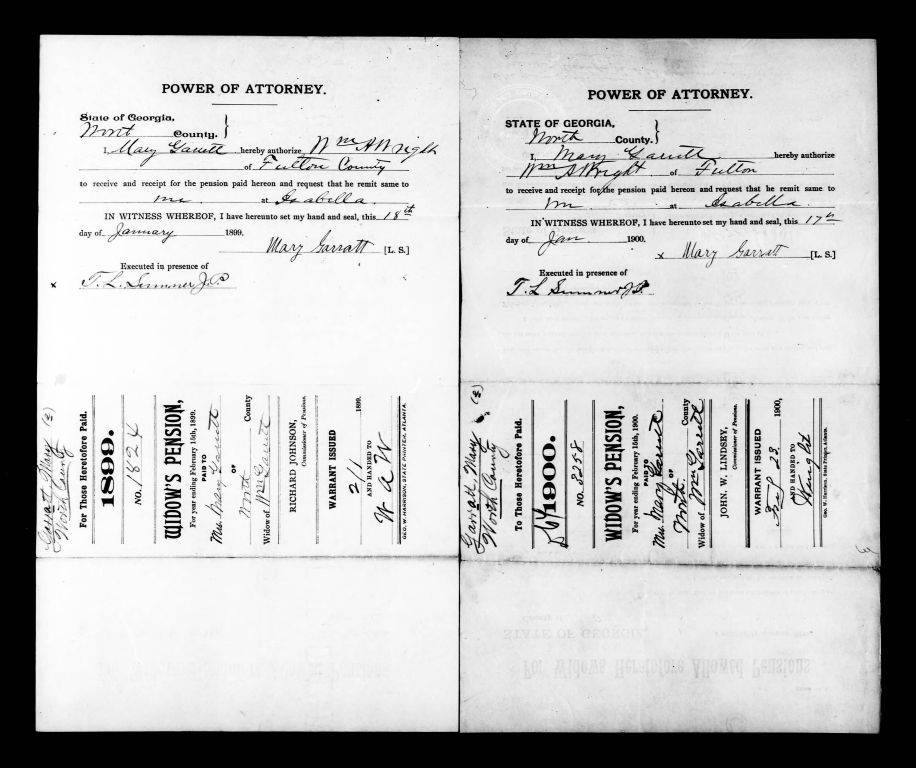 POWER OF ATTORNEY.
State of Georgia,
Wort County. }
I, Mary Garrett hereby authorize Wm A Wright
of Fulton County
to receive and receipt for the pension paid hereon and request that he remit same to
me at Isabella.
IN WITNESS WHEREOF, I have hereunto set my hand and seal, this 18th
day of January 1899.
Mary Garratt [L. S.]
Executed in presence of
x T. L. Sumner J.P.
Garratt, Mary (3)
Worth County
For Those Heretofore Paid.
1899.
NO. 1824
WIDOW'S PENSION,
For year ending February 15th, 1899.
PAID TO
Mrs. Mary Garrett
OF
Worth County
Widow of Wm Garrett
RICHARD JOHNSON,
Commissioner of Pensions.
WARRANT ISSUED
2/1 1899.
AND HANDED TO
W A W
GEO. W. HARRISON, STATE PRINTER, ATLANTA.
POWER OF ATTORNEY.
STATE OF GEORGIA,
Worth County. }
I, Mary Garrett hereby authorize
Wm A Wright of Fulton
to receive and receipt for the pension paid hereon and request that he remit same to
me at Isabella.
IN WITNESS WHEREOF, I have hereunto set my hand and seal, this 17th
day of Jan. 1900.
x Mary Garratt [L. S.]
Executed in presence of
T. L Sumner J.P.
Garratt, Mary (3)
Worth County
To Those Heretofore Paid.
1900.
NO. 3258
WIDOW'S PENSION,
For year ending February 15th, 1900.
PAID TO
Mrs. Mary Garrett
OF
Worth County
Widow of Wm Garrett
JOHN W. LINDSEY,
Commissioner of Pensions.
WARRANT ISSUED
23 1900,
AND HANDED TO
Wright
Geo. W. Harrison, State Printer, Atlanta.
STATE OF GEORGIA,
For Widows Heretofore Allowed Pensions